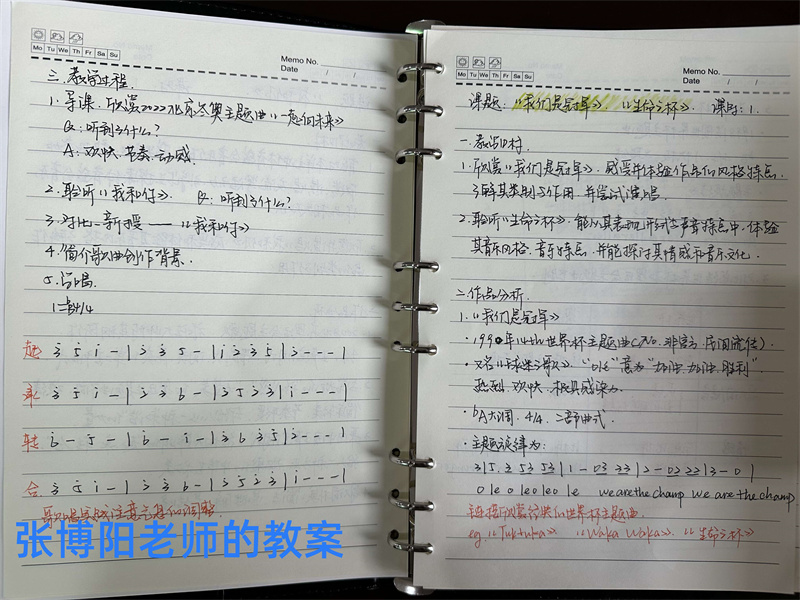 Mo Tu We Th Fr Sa Su
Memo No.
Date / /
三.教学过程
1.导课:欣赏2022北京冬奥主题曲《一起向未来》
Q:听到了什么?
A:欢快.节奏.动感.
2.聆听《我和你》. Q:听到了什么?
3.对比.新授——《我和你》
4.简介歌曲创作背景.
5.学唱.
4/4
起 3 5 i - | 2 3 5 - | i 2 3 5 | 2 - - - |
承 3 5 i - | 2 3 6 - | 5 2 3 | i - - - |
转 6 - 5 - | 6 - i - | 3 6 3 5 | 2 - - - |
合 3 5 i - | 2 3 6 - | 5 2 3 | i - - - |
张博阳老师的教案
Mo Tu We Th Fr Sa Su
Memo No.
Date / /
课题:《我们是冠军》.《生命之杯》. 课时:1.
一.教学目标
1.欣赏《我们是冠军》.感受并体验作品的风格特点.
了解其类别与作用.并尝试演唱.
2.聆听《生命之杯》.能从其表现形式与声音特点中.体验
其音乐风格.音乐特点.并能探讨其情感和音乐文化.
二.作品分析.
1.《我们是冠军》
·1990年14th世界杯主题曲(No.非官方.民间流传).
·又名《球迷之歌》. "ole"意为"加油.加油.胜利".
热烈.欢快.极具感染力.
·bA大调. 4/4. 二部曲式.
·主题旋律为:
3 | 5. 3 53 53 | 1 - 03 33 | 2 - 02 22 | 3 - 0 |
o le o leo leo le we are the champ we are the champ
链接欣赏经典的世界杯主题曲
《Waka Waka》. 《生命之杯》